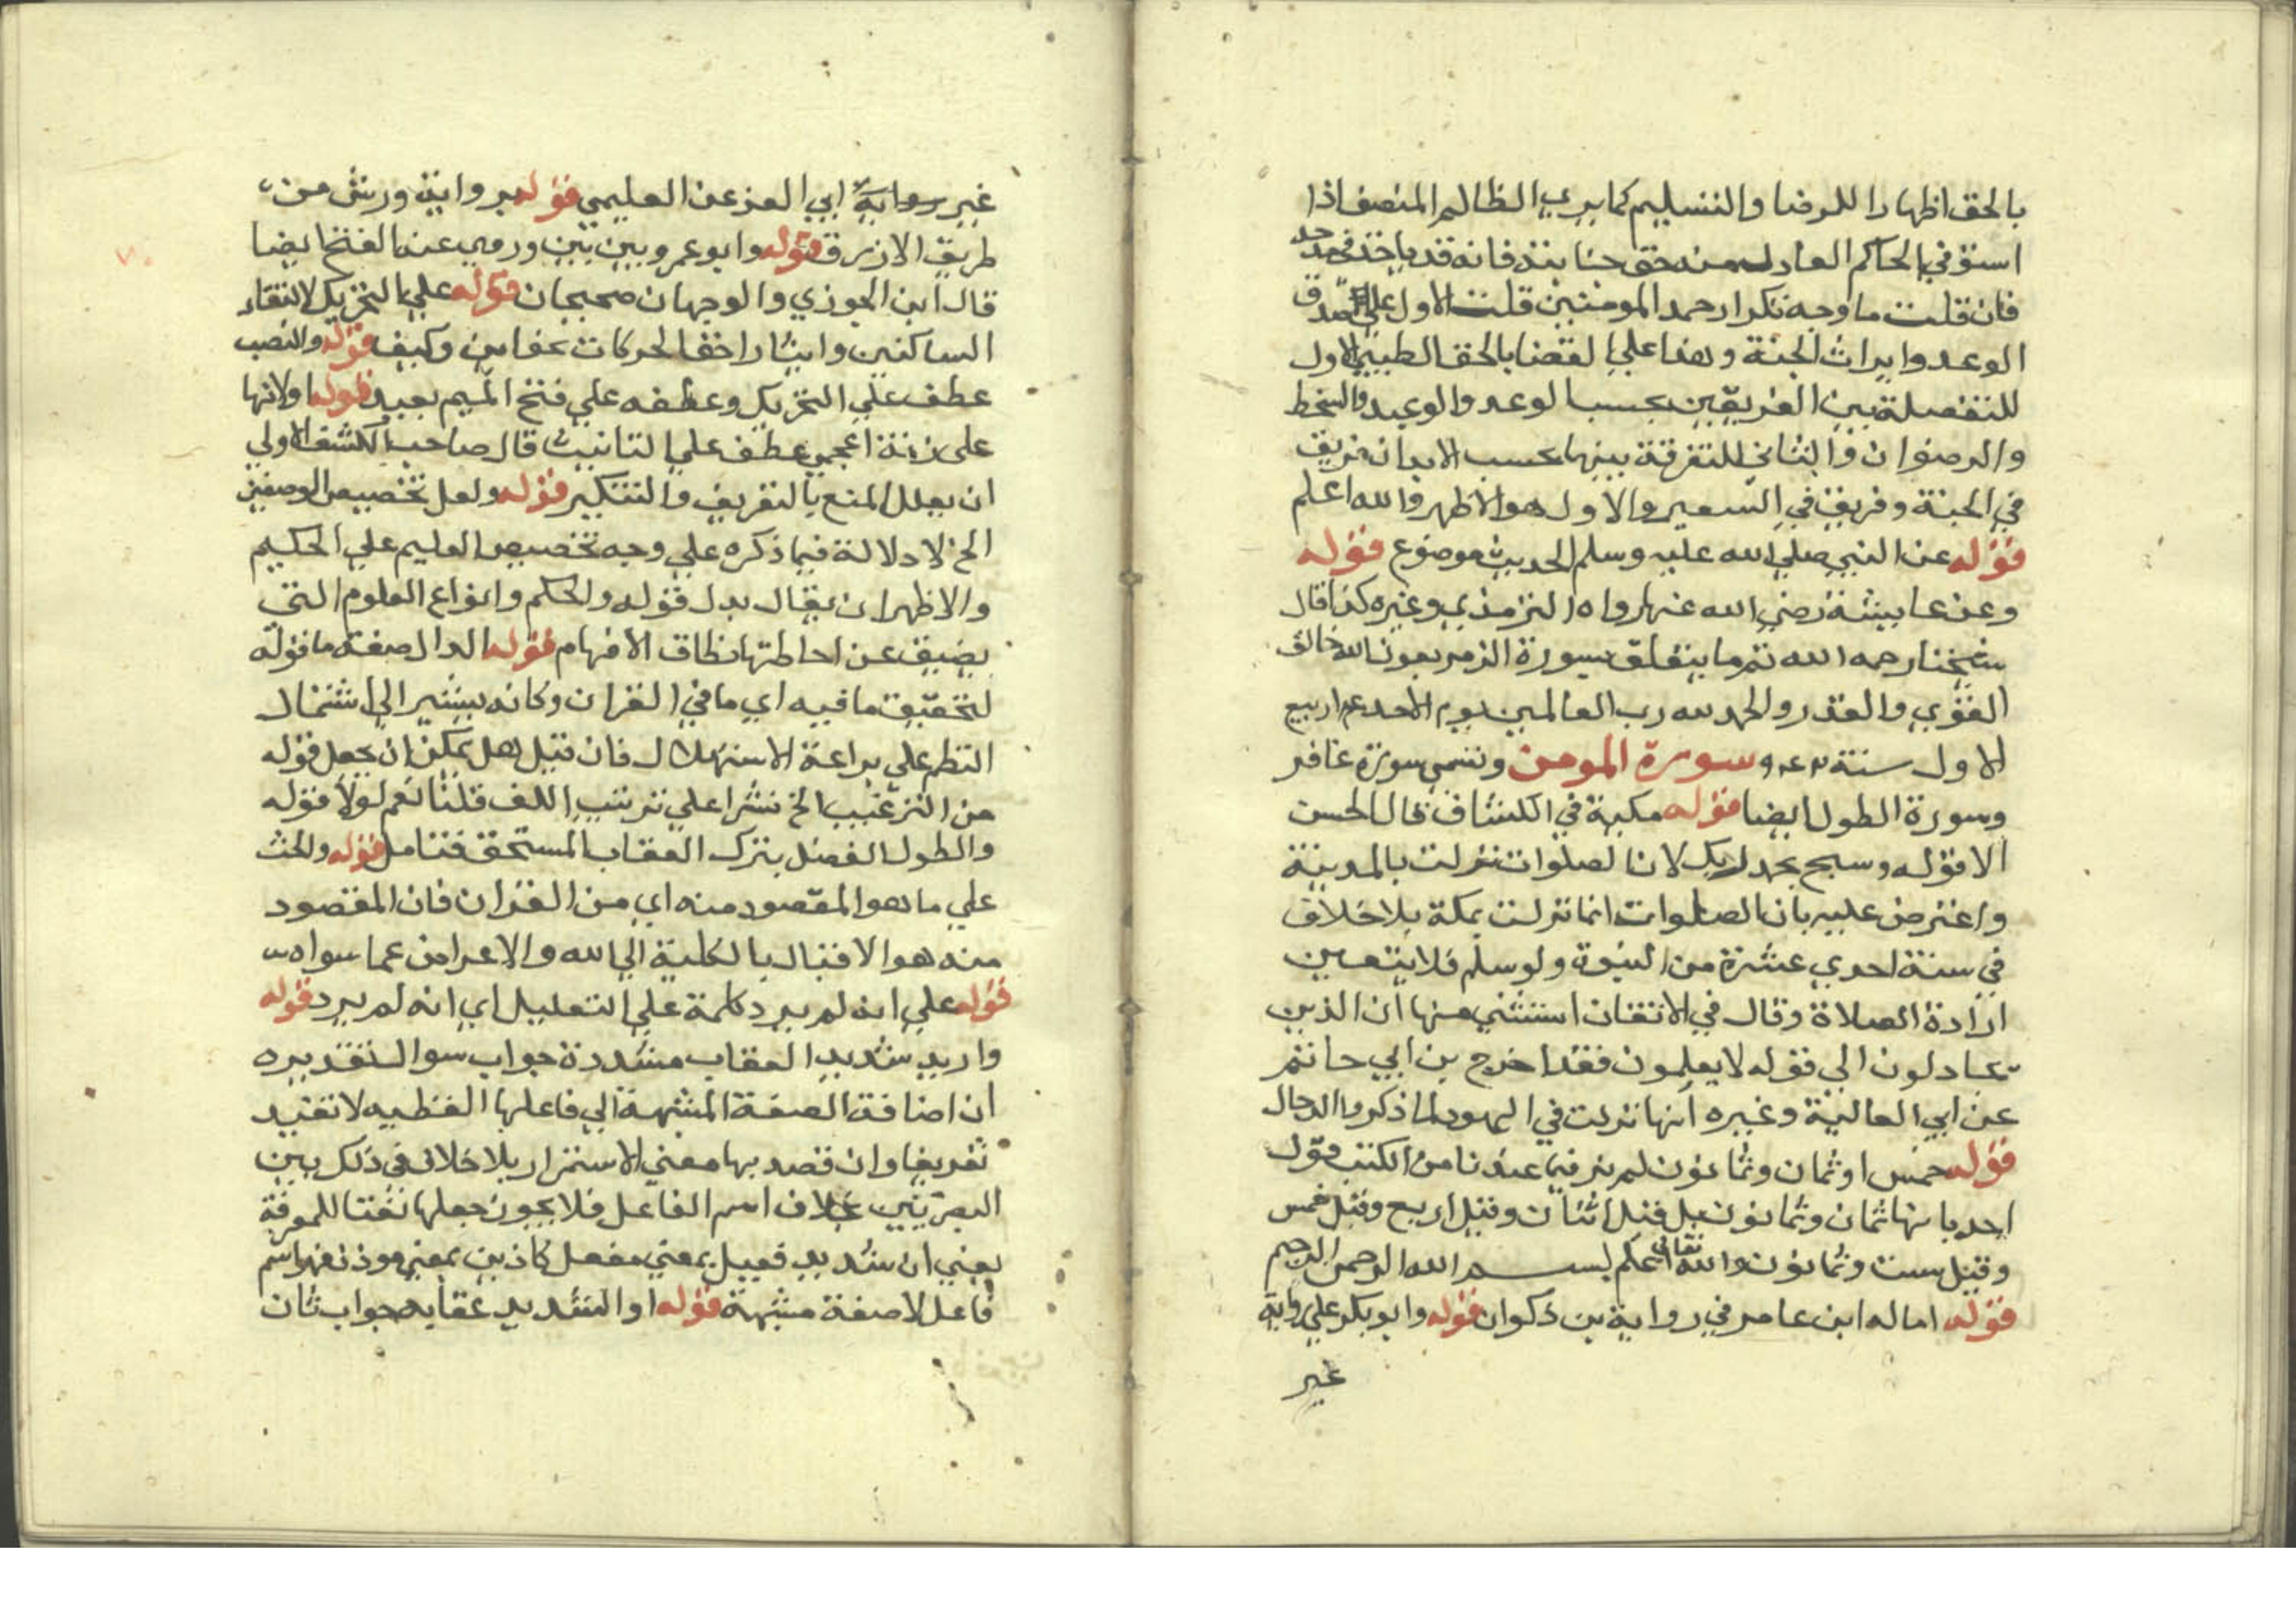 بالحق اظهارا للرضا والتسليم كما يري الظالم المنصف اذا
استوفي الحاكم العادل منه حق جنايته فانه قد ياخذ في حمد
فان قلت ما وجه تكرار حمد المومنين قلت الاول علي صدق
الوعد وايراث الجنة وهذا علي القضا بالحق الطيبي الاول
للتفصلة بين الفريقين بحسب الوعد والوعيد والسخط
والرضوان والثاني للتفرقة بينهما بحسب الابدان فريق
في الجنة وفريق في السعير والاول هو الاظهر والله اعلم
قوله عن النبي صلي الله عليه وسلم الحديث موضوع قوله
وعن عايشة رضي الله عنها رواه الترمذي وغيره كذا قال
شيخنا رحمه الله تم ما يتعلق بسورة الزمر بعون الله خالق
القوي والقدر والحمد لله رب العالمين يوم الاحد ربيع
الاول سنة سورة المومن وتسمي سورة غافر
وسورة الطول ايضا قوله مكية في الكشاف قال الحسن
الا قوله وسبح بحمد ربك لان الصلوات نزلت بالمدينة
واعترض عليه بان الصلوات انما نزلت بمكة بلا خلاف
في سنة احدي عشرة من النبوة ولو سلم فلا يتعين
ارادة الصلاة وقال في الاتقان استثني منها ان الذين
يجادلون الي قوله لا يعلمون فقد اخرج بن ابي حاتم
عن ابي العالية وغيره انها نزلت في اليهود لما ذكروا الدجال
قوله خمس او ثمان وثمانون لم نر فيما عندنا من الكتب قول
احد بانها ثمان وثمانون بل قيل اثنان وقيل اربع وقيل خمس
وقيل ست وثمانون والله تعالي اعلم بسم الله الرحمن الرحيم
قوله اماله ابن عامر في رواية بن ذكوان قوله وابو بكر علي رواية
غير
غير رواية ابي العز عن العليمي قوله برواية ورش من
طريق الازرق قوله وابو عمرو بين بين وروي عنه الفتح ايضا
قال ابن الجوزي والوجهان صحيحان قوله علي التحريك لالتقاء
الساكنين وايثار اخف الحركات نحو اين وكيف قوله والنصب
عطف علي التحريك وعطفه علي فتح الميم بعيد قوله او لانها
علي زنة اعجمي عطف علي التانيث قال صاحب الكشف الاولي
ان يعلل المنع بالتعريف والتنكير قوله ولعل تخصيص الوصفين
الخ لا دلالة فيما ذكره علي وجه تخصيص العليم علي الحكيم
والاظهر ان يقال بدل قوله والحكم وانواع العلوم التي
يضيق عن احاطتها نطاق الافهام قوله الدال صفة ما قوله
لتحقيق ما فيه اي ما في القران وكانه يشير الي اشتمال
النظم علي براعة الاستهلال فان قيل هل يمكن ان يجعل قوله
من الترغيب الخ نشرا علي ترتيب اللف قلنا نعم لولا قوله
والطول الفضل بترك العقاب المستحق فتامل قوله والحث
علي ما هو المقصود منه اي من القران فان المقصود
منه هو الاقبال بالكلية الي الله والاعراض عما سواه
قوله علي انه لم يرد كلمة علي التعليل اي انه لم يرد قوله
واريد شديد العقاب مشددة جواب سوال تقديره
ان اضافة الصفة المشبهة الي فاعلها لفظيه لا تفيد
تعريفا وان قصد بها معني الاستمرار بلا خلاف في ذلك بين
البصريين بخلاف اسم الفاعل فلا يجوز جعلها نعتا للمعرفة
يعني ان شديد فعيل بمعني مفعل كاذين بمعني موذن فهو اسم
فاعل لا صفة مشبهة قوله او الشديد عقابه جواب ثان